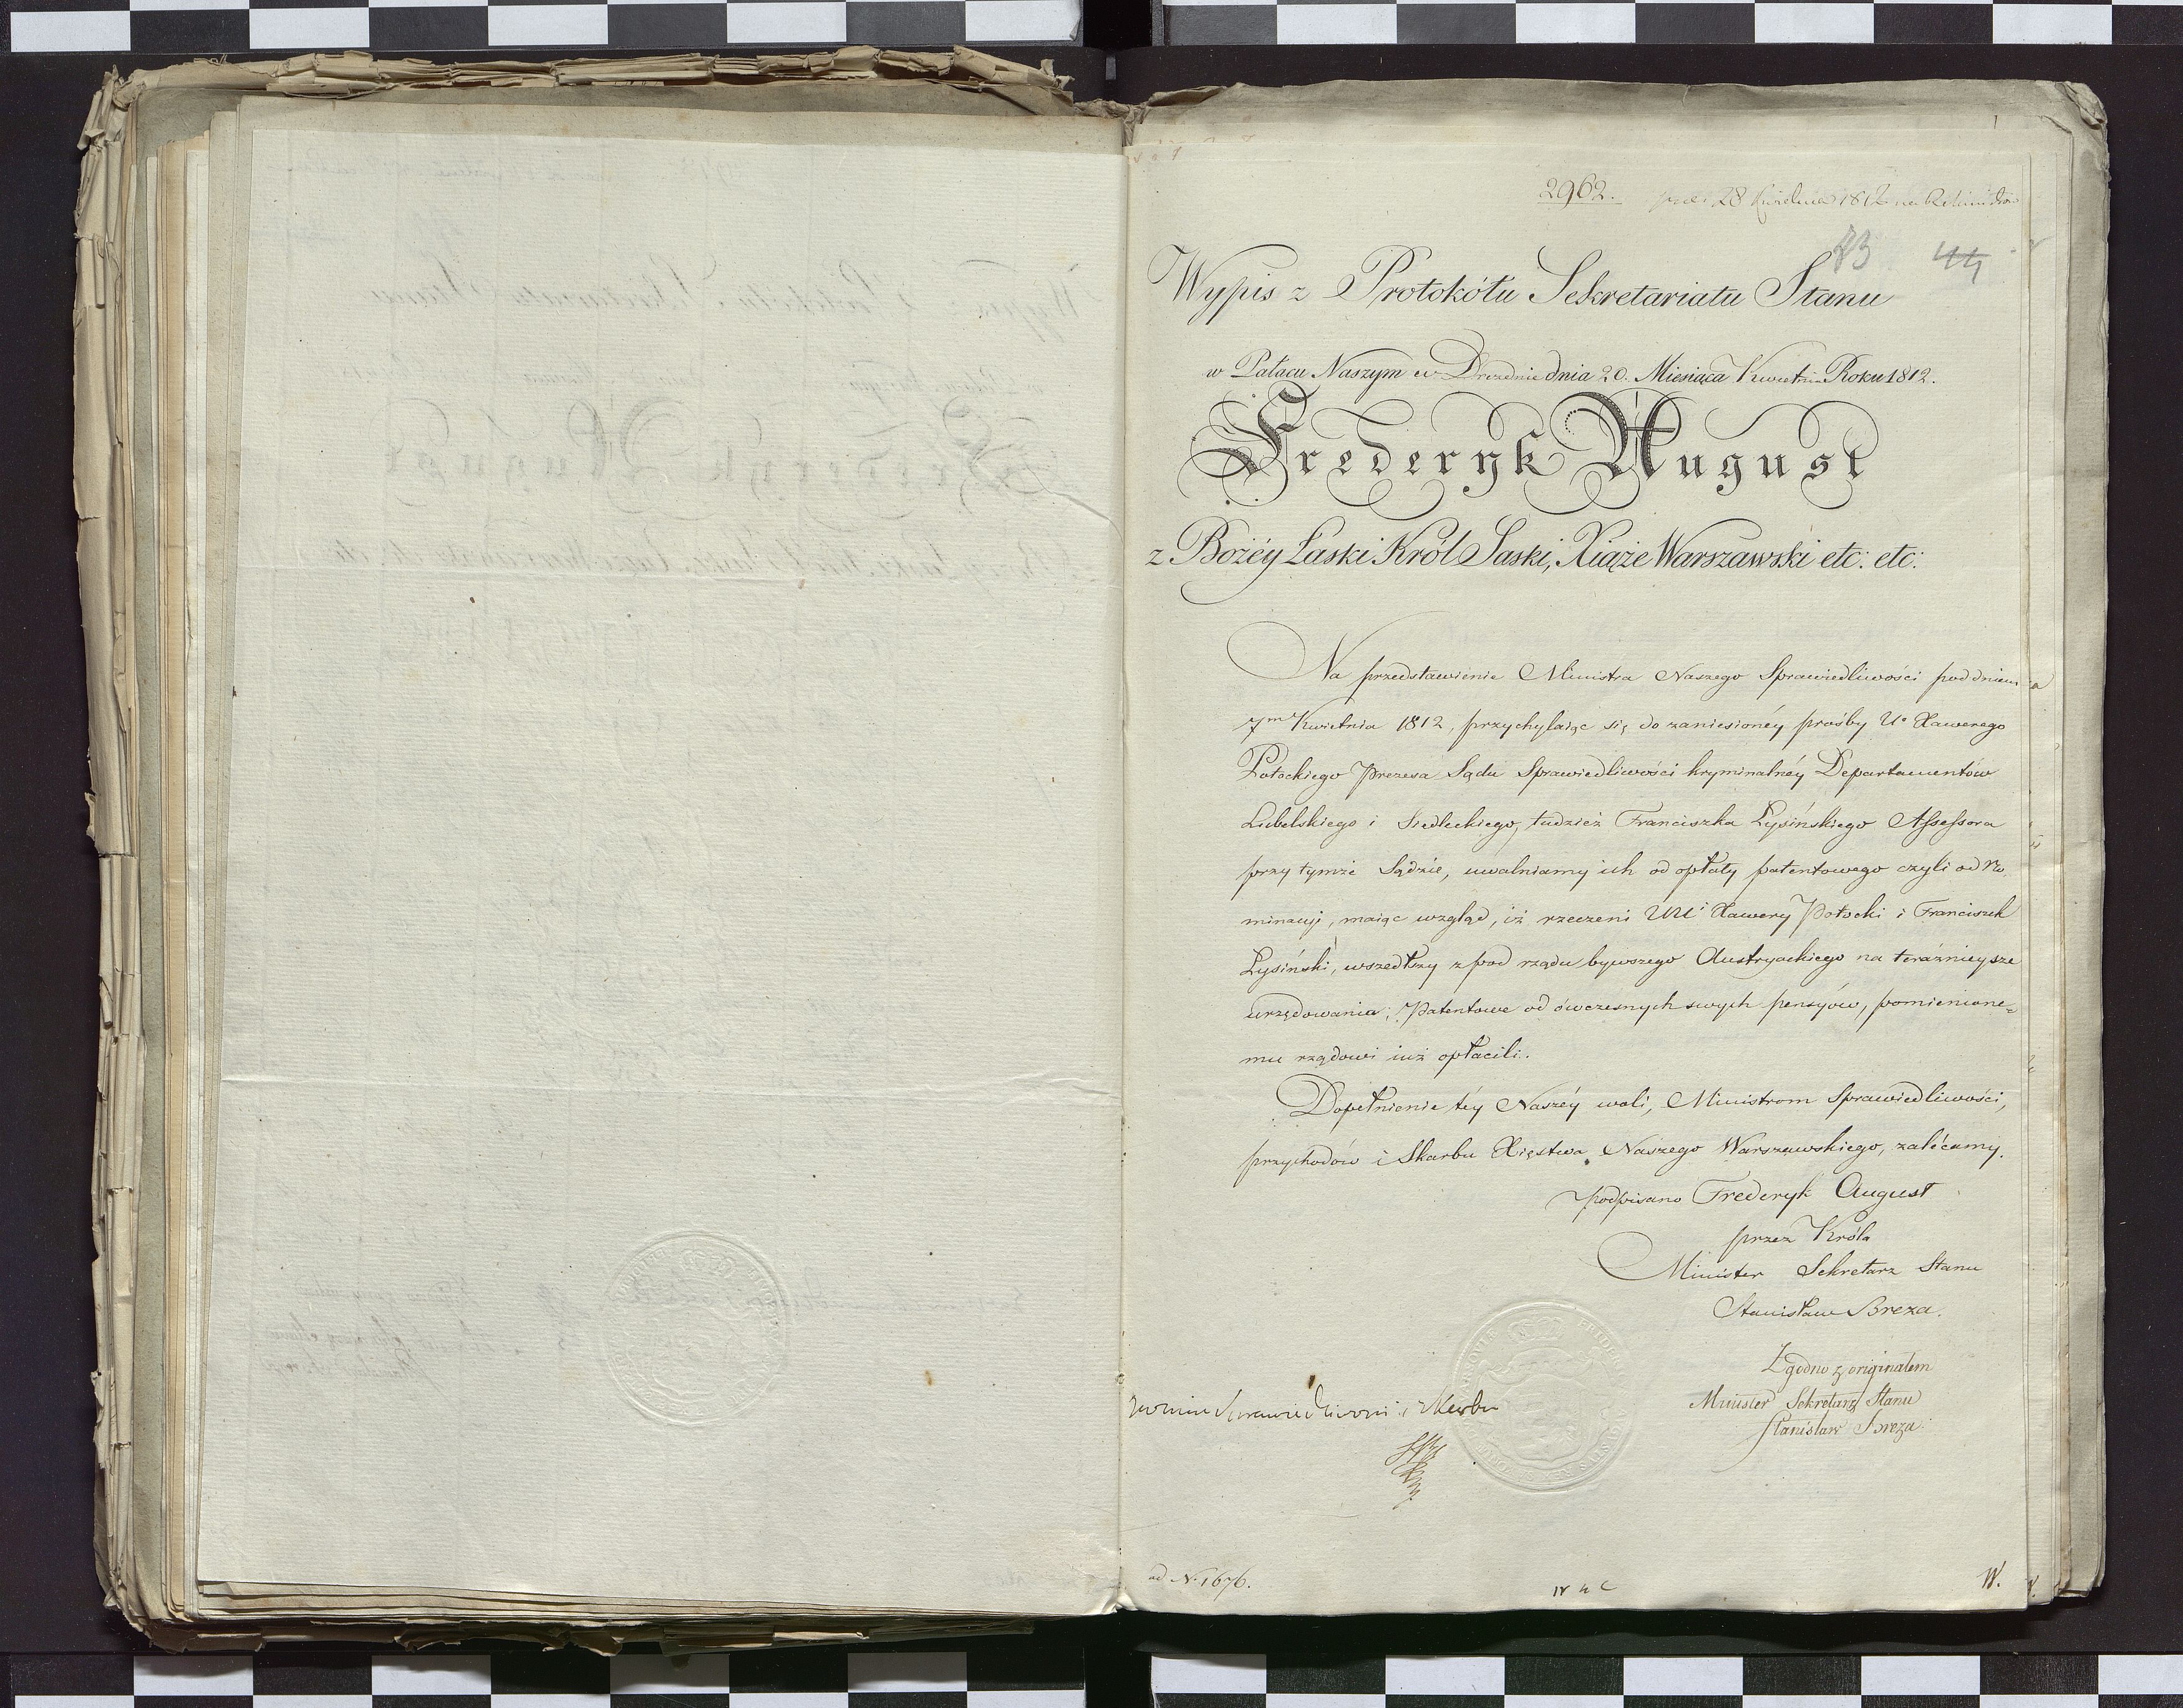 2962.
28 Kwietnia 1812 na R. Ministrów
73 44
Wypis z Protokółu Sekretariatu Stanu
w Pałacu Naszym w Dreznie dnia 20. Miesiąca Kwietnia Roku 1812.
Frederyk August
z Bożéy Łaski Król Saski, Xiąże Warszawski etc: etc:
Na przedstawienie Ministra Naszego Sprawiedliwości pod dniem
7m Kwietnia 1812, przychylaiąc się do zaniesionéy prośby Uo Xawerego
Potockiego Prezesa Sądu Sprawiedliwości kryminalnéy Departamentów
Lubelskiego i Siedleckiego, tudzież Franciszka Łysińskiego Assessora
przy tymże Sądzie, uwalniamy ich od opłaty patentowego czyli od No-
minacyi, maiąc wzgląd, iż rzeczeni UUi Xawery Potocki i Franciszek
Łysiński, wszedłszy z pod rządu bywszego Austryackiego na teraźnieysze
urzędowania; Patentowe od ówczesnych swych pensyów, pomienione=
mu rządowi iuż opłacili.
Dopełnienie téy Naszéy woli, Ministrom Sprawiedliwości,
przychodów i Skarbu Xięstwa Naszego Warszawskiego, zalécamy.
podpisano Frederyk August
przez Króla
Minister Sekretarz Stanu
Stanisław Breza.
Zgodno z originałem
Minister Sekretarz Stanu
Stanisław Breza.
Sprawiedliwości i Skarbu
ad N. 1676.
W.